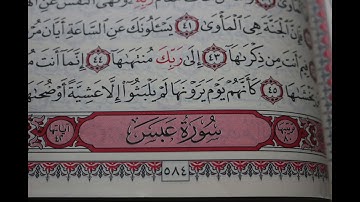 فَإِنَّ الْجَنَّةَ هِيَ الْمَأْوَىٰ ٤١ يَسْـَٔلُونَكَ عَنِ السَّاعَةِ أَيَّانَ
فِيمَ أَنتَ مِن ذِكْرَىٰهَا ٤٣ إِلَىٰ رَبِّكَ مُنتَهَىٰهَا ٤٤ إِنَّمَا أَنتَ
يَخْشَىٰهَا ٤٥ كَأَنَّهُمْ يَوْمَ يَرَوْنَهَا لَمْ يَلْبَثُوا إِلَّا عَشِيَّةً أَوْ ضُحَىٰهَا
سُورَةُ عَبَسَ
٥٨٤